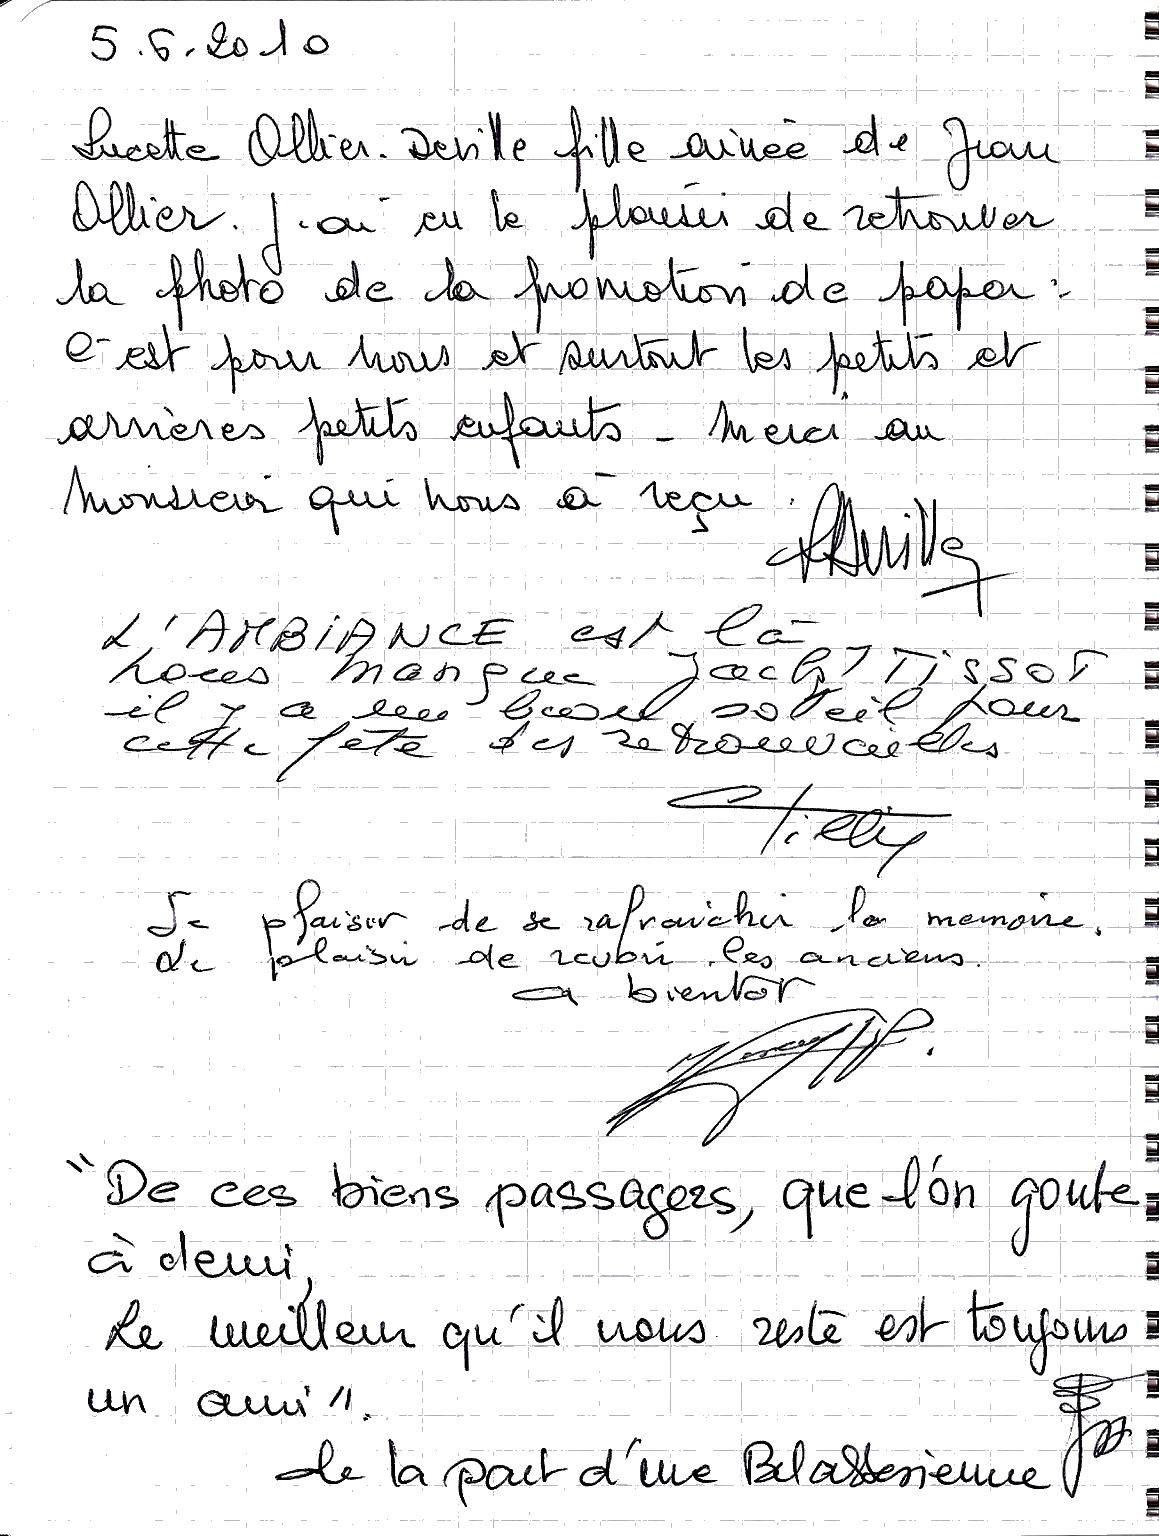 5.6.2010
Lucette Ollier. Deville fille ainée de Jean
Ollier. J'ai eu le plaisir de retrouver
la photo de la promotion de papa :
C'est pour nous et surtout les petits et
arrières petits enfants - Merci au
Monsieur qui nous à reçu.
LDeville
L'AMBIANCE est là
nous manque TISSOT
il y a un beau soleil pour
cette fête des retrouvailles
Le plaisir de se rafraichir la memoire.
Le plaisir de revoir les anciens.
a bientot
"De ces biens passagers, que l'on goute
à demi,
Le meilleur qu'il nous reste est toujours
un ami".
de la part d'une